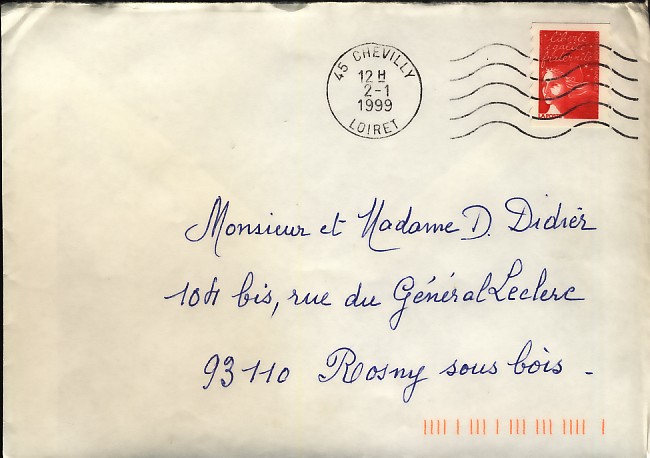 45 CHEVILLY
12 H
2-1
1999
LOIRET
liberté
égalité
fraternité
Monsieur et Madame D. Didier
104 bis, rue du Général Leclerc
93110 Rosny sous bois -